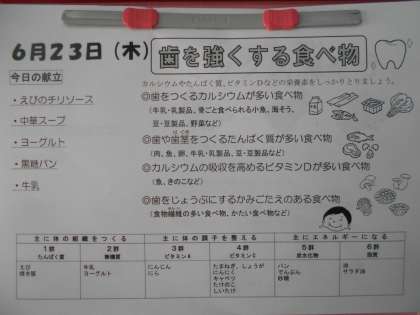 6月23日（木）
歯を強くする食べ物
カルシウムやたんぱく質、ビタミンDなどの栄養素をしっかりとりましょう。
今日の献立
・えびのチリソース
・中華スープ
・ヨーグルト
・黒糖パン
・牛乳
◎歯をつくるカルシウムが多い食べ物
(牛乳・乳製品、骨ごと食べられる小魚、海そう、
豆・豆製品、野菜など)
◎歯や歯茎をつくるたんぱく質が多い食べ物
(肉、魚、卵、牛乳・乳製品、豆・豆製品など)
◎カルシウムの吸収を高めるビタミンDが多い食べ物
(魚、きのこなど)
◎歯をじょうぶにするかみごたえのある食べ物
(食物繊維の多い食べ物、かたい食べ物など)
主に体の組織をつくる 主に体の調子を整える 主にエネルギーになる
1群 2群 3群 4群 5群 6群
たんぱく質 無機質 ビタミンA ビタミンC 炭水化物 脂質
えび 牛乳 にんじん たまねぎ、しょうが パン 油
ヨーグルト にら にんにく でんぷん サラダ油
キャベツ 砂糖
たけのこ
しいたけ